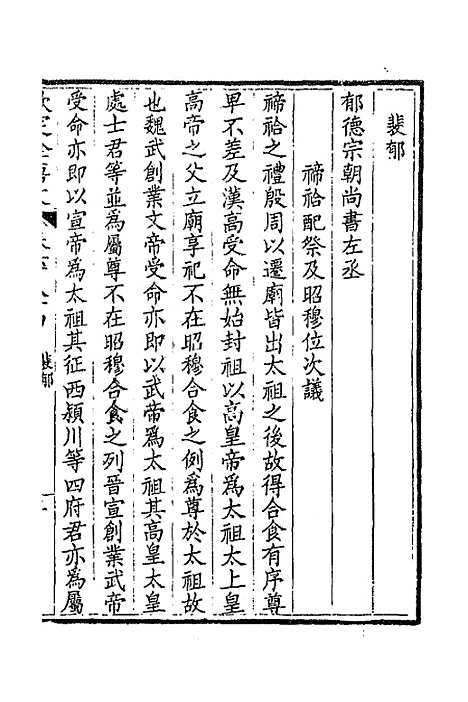 裴郁
郁德宗朝尚書左丞
禘祫配祭及昭穆位次議
禘祫之禮殷周以遷廟皆出太祖之後故得合食有序尊
卑不差及漢高受命無始封祖以高皇帝爲太祖太上皇
高帝之父立廟享祀不在昭穆合食之例爲尊於太祖故
也魏武創業文帝受命亦即以武帝爲太祖其高皇太皇
處士君等並爲屬尊不在昭穆合食之列晉宣創業武帝
受命亦即以宣帝爲太祖其征西潁川等四府君亦爲屬
欽定全唐文
裴郁